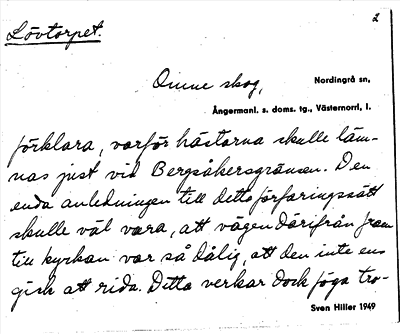 2
Lövtorpet.
Omne skog,
Nordingrå sn,
Ångermanl. s. doms. tg., Västernorrl. l.
förklara, varför hästarna skulle läm-
nas just vid Bergsåkersgränsen. Den
enda anledningen till detta förfaringssätt
skulle väl vara, att vägen därifrån fram
till kyrkan var så dålig, att den inte ens
gick att rida. Detta verkar dock föga tro-
Sven Hiller 1949